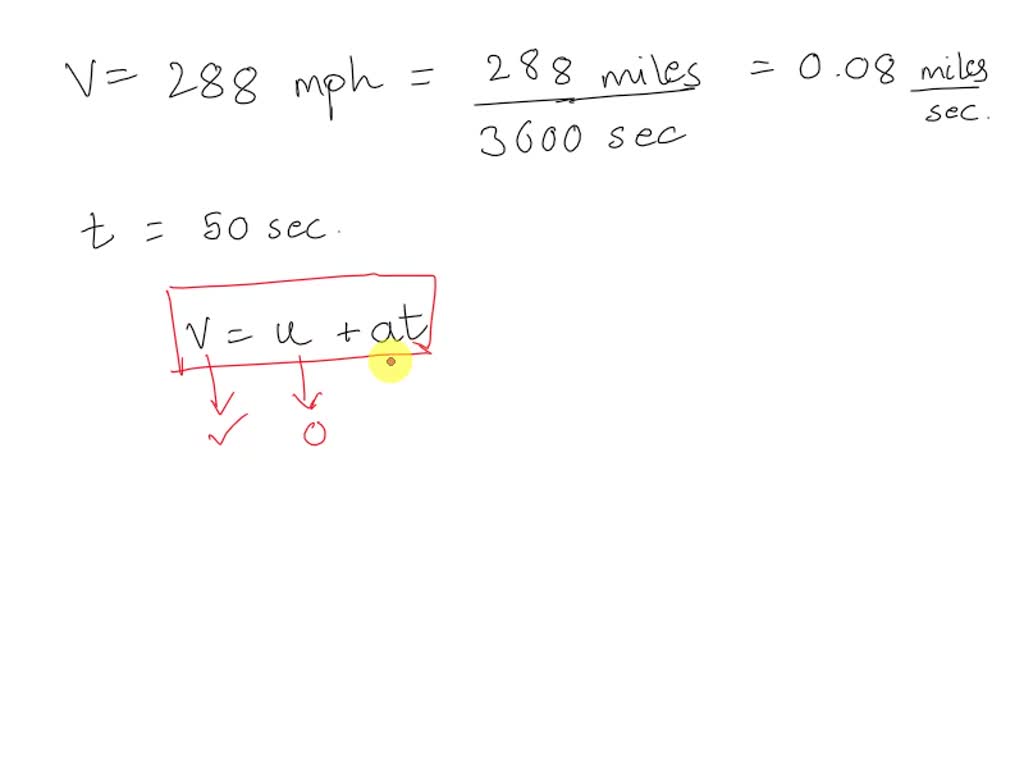 V = 288 mph = 288 miles / 3600 sec = 0.08 miles / sec.
t = 50 sec.
V = u + at
✓ 0